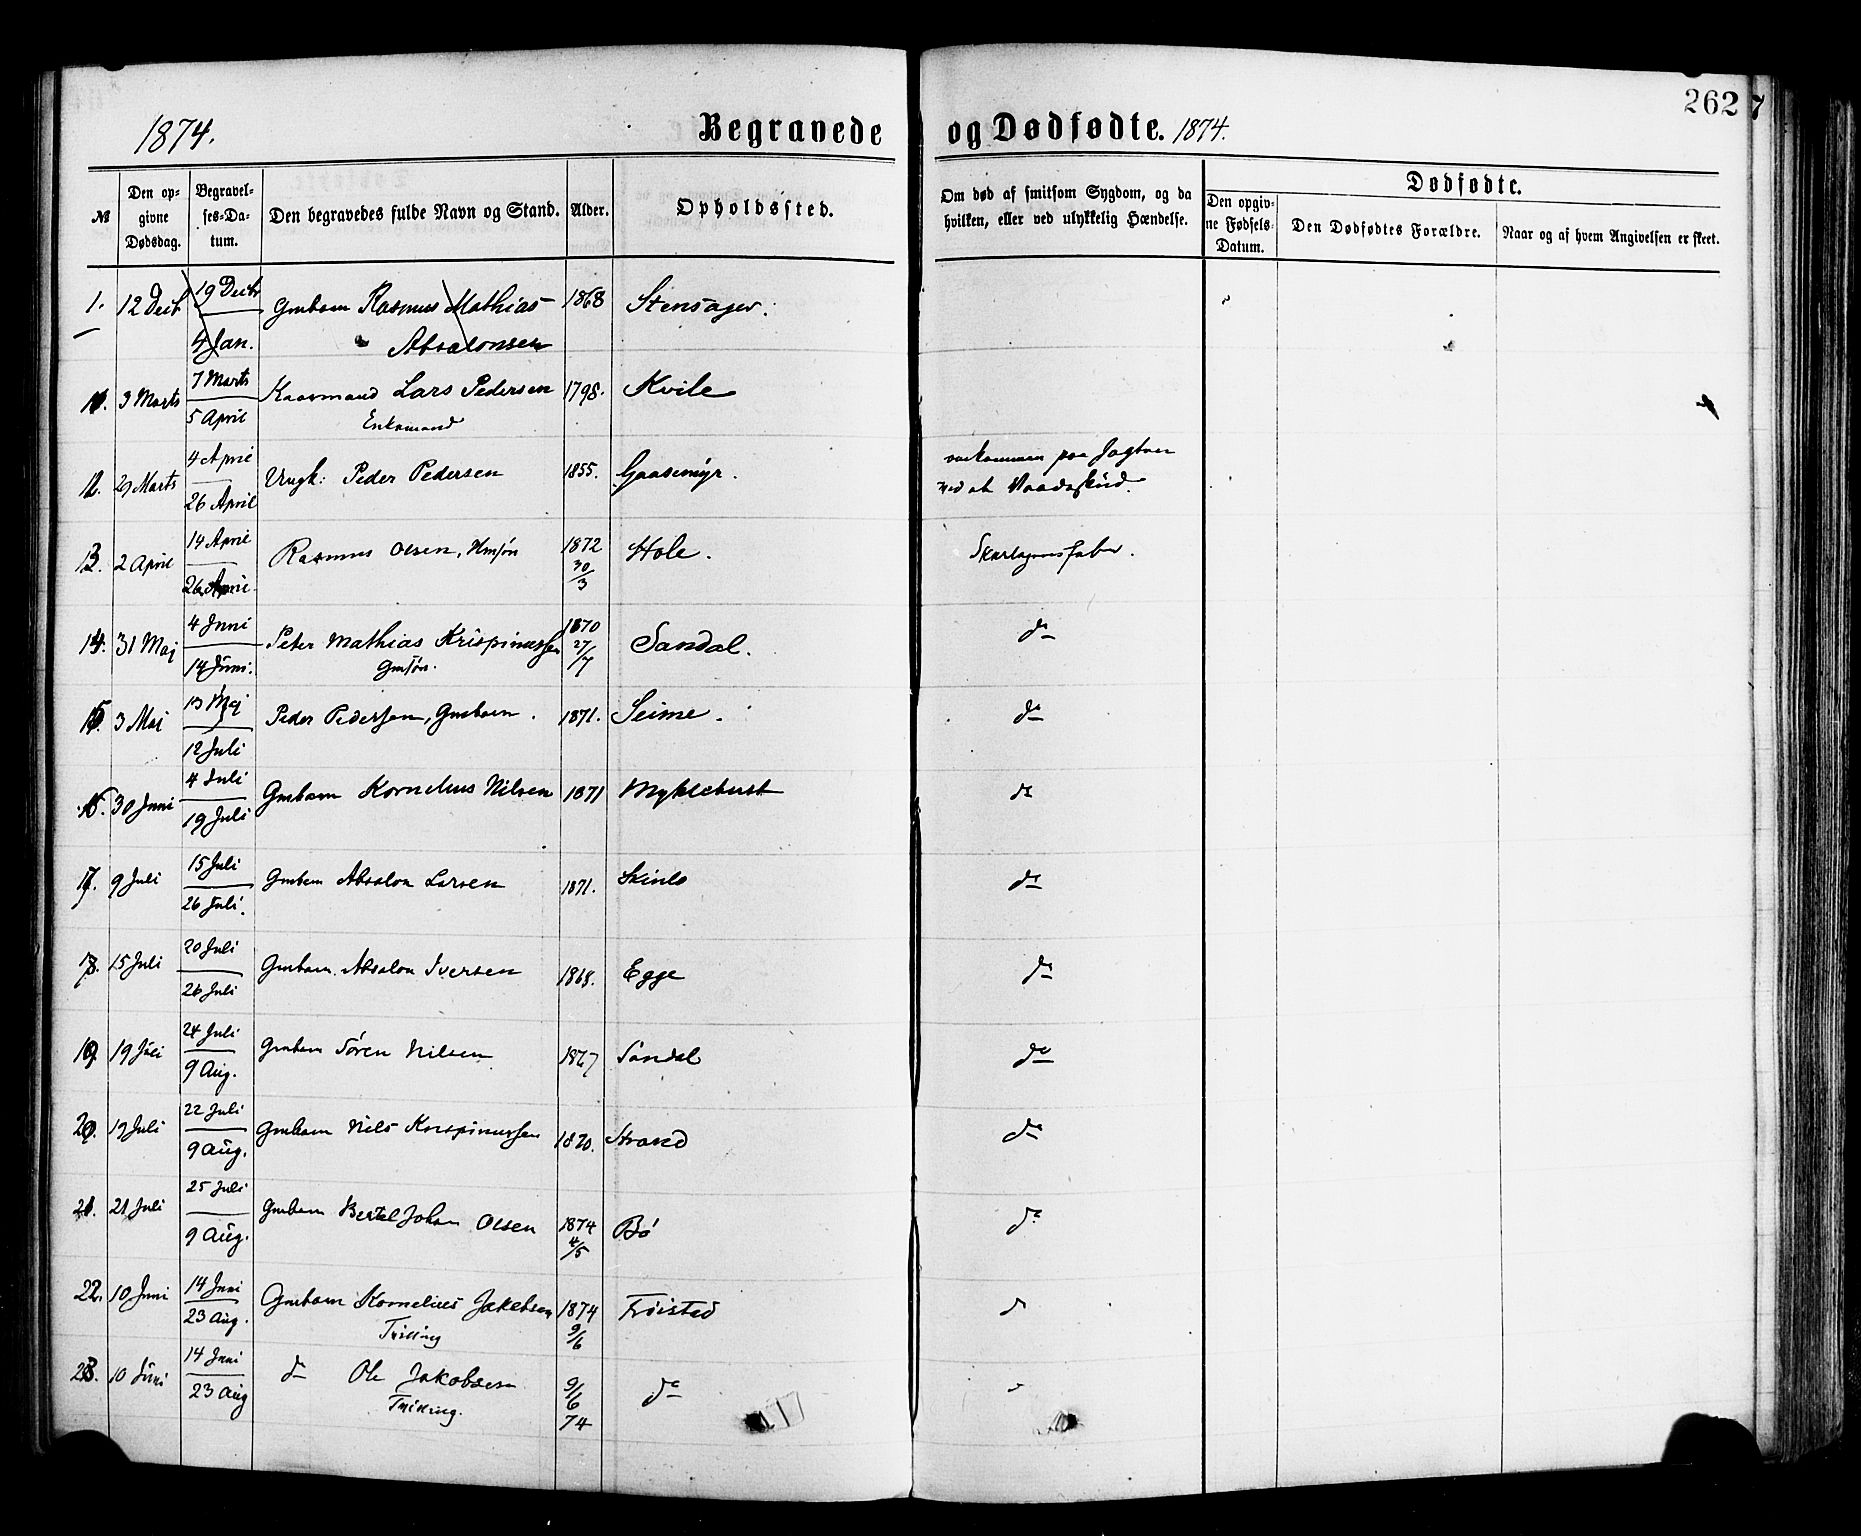 262 7
1874. Begravede og Dødfødte. 1874.
№ Den opgivne Dødsdag. Begravelses-Datum. Den begravedes fulde Navn og Stand. Alder. Opholdssted. Om død af smitsom Sygdom, og da hvilken, eller ved ulykkelig Hændelse. Dødfødte.
Den opgivne Fødsels-Datum. Den Dødfødtes Forældre. Naar og af hvem Angivelsen er skeet.
1. 12 Decb 19 Decbr Gmbarn Rasmus Mathias 1868 Stensager.
4 Jan. Absalonsen
3 Marts 7 Marts Kaarmand Lars Pedersen 1798. Kvile
5 April Enkemand
12. 29 Marts 4 April Ungk: Peder Pedersen 1855. Gaasemyr. omkommen paa Jagtven
26 April ved et Vaadeskud.
13. 2 April 14 April Rasmus Olsen, Hmsøn 1872 Hole. Skarlagensfeber.
26 April 30/3
14. 31 Maj 4 Juni Peter Mathias Krispinussen 1870 Sandal. do
14 Juni. Gmsøn. 27/7
15. 3 Maj 13 Maj Peder Pedersen, Gmbarn. 1871. Seime. do
12 Juli
30 Juni 4 Juli Gmbarn Kornelius Nilsen 1871 Myklebust do
19 Juli
17. 9 Juli 15 Juli Gmbarn Absalon Larsen 1871. do
26 Juli.
18. 15 Juli 20 Juli Gmbarn. Absalon Iversen 1868. Egge do
26 Juli
19. 19 Juli 24 Juli Gmbarn Søren Nilsen 1867 Sandal do
9 Aug.
20. 19 Juli 22 Juli Gmbarn Nils Krispinussen 1870. Strand do
9 Aug.
21. 21 Juli 25 Juli Gmbarn Bertel Johan Olsen 1874 Bø do
9 Aug. 4/5
22. 10 Juni 14 Juni Gmbarn Kornelius Jakobsen 1874 Frøistad
23 Aug. Tvilling 9/6
23. 10 Juni 14 Juni do Ole Jakobsen 9/6 do
23 Aug Tvilling. 74